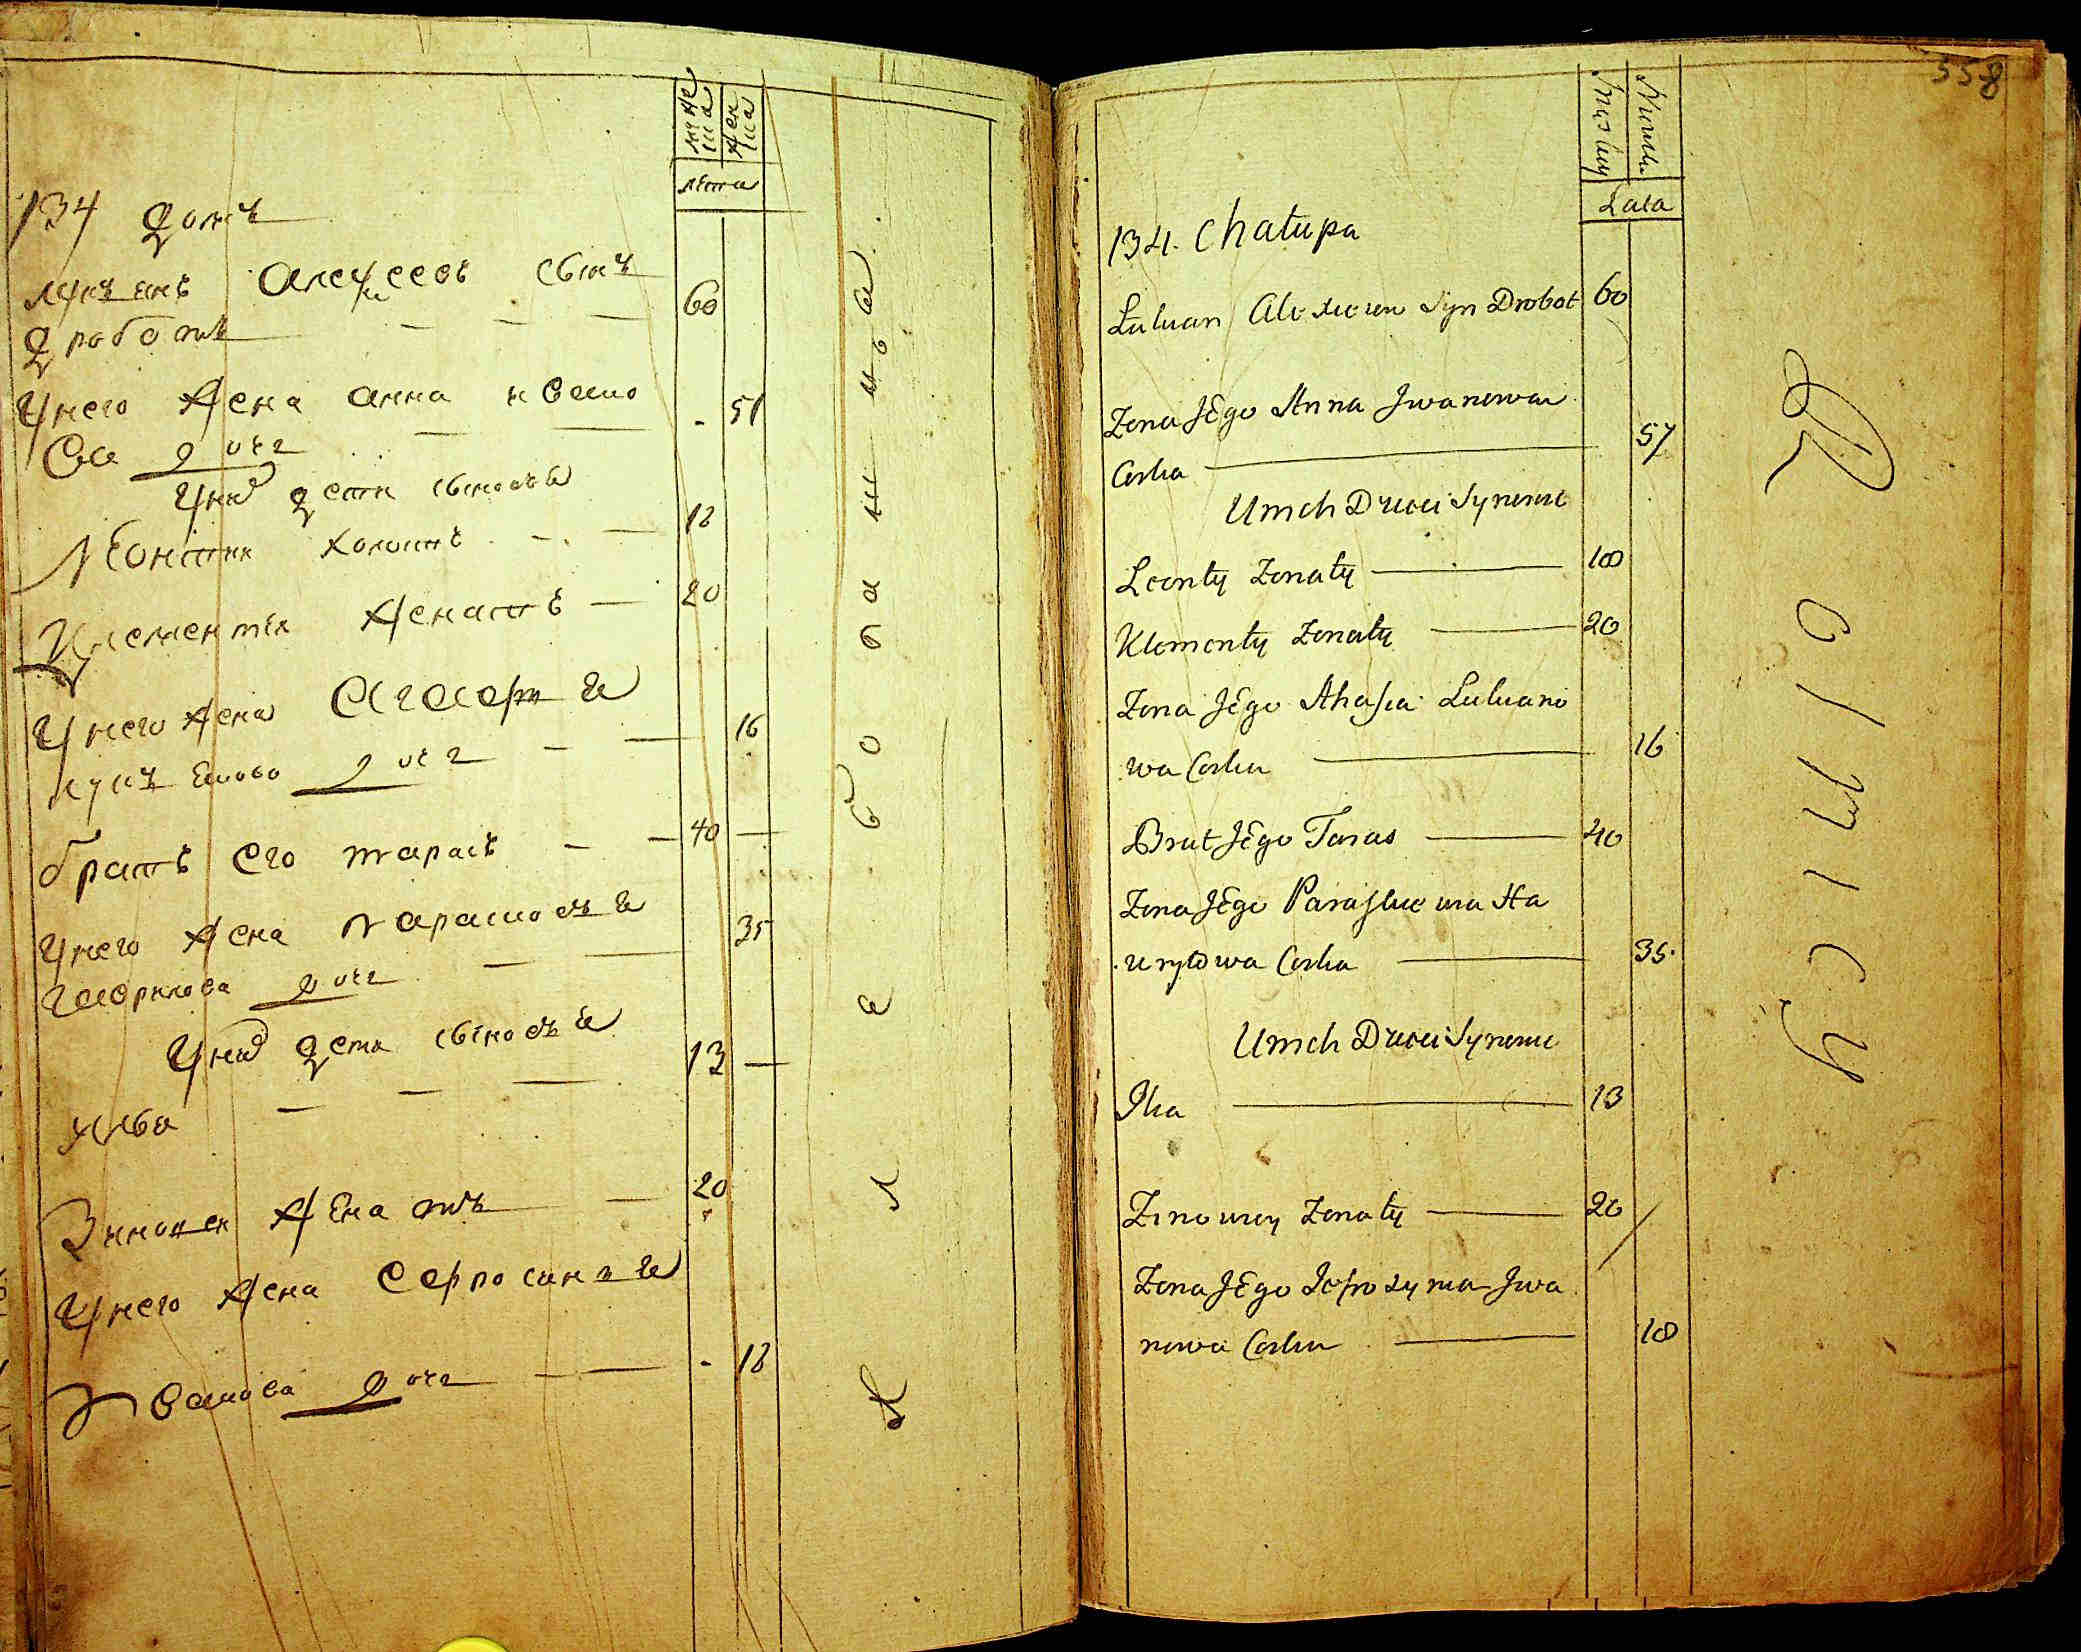 мужеска
женска
лета
134 домъ
лукъянъ алексеевъ сынъ
дработъ 60
у него жена анна ивано
ва дочь 51
у них дети сыновья
Леонтий холостъ 18
Климентий женатъ 20
у него жена агафия
лукъянова дочь 16
братъ его тарасъ 40
у него жена парасковья
гаврилова дочь 35
у них дети сыновья
илья 13
Зиновей женатъ 20
у него жена ефросиния
Иванова дочь 18
558
Męskey
Niewie.
Lata
134. Chałupa
Lukian Alexieiew Syn Drobot 60
Zona Jego Anna Jwanowa
Corka 57
U nich Dzieci Synowie
Leonty Zonaty 18
Klementy Zonaty 20
Zona Jego Ahafia Lukiano
wa Corka 16
Brat Jego Taras 40
Zona Jego Paraskewia Ha
wryłowa Corka 35.
U nich Dzieci Synowie
Ilia 13
Zinowiey Zonaty 20
Zona Jego Jefrosynia Jwa
nowa Corka 18
Rolnicy